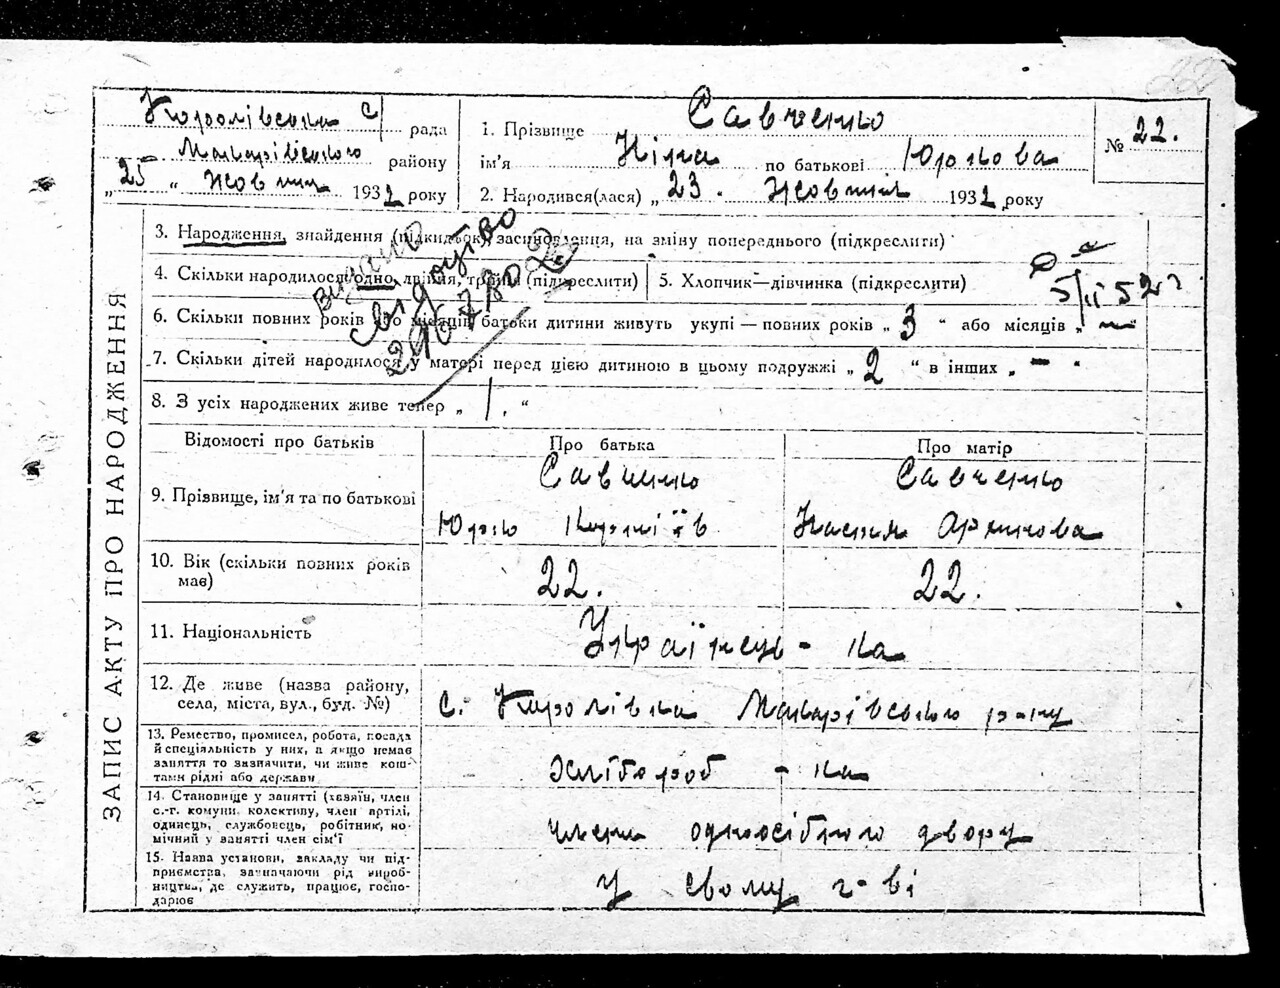 22
Королівська с/ рада
Макарівського району
„25" жовтня 1932 року
1. Прізвище Савченко
ім'я Ніна по батькові Юркова
2. Народився(лася) „23. жовтня 1932 року
№ 22.
ЗАПИС АКТУ ПРО НАРОДЖЕННЯ
3. Народження, знайдення (підкидьок), засиновлення, на зміну попереднього (підкреслити)
4. Скільки народилося: одно, двійня, трійня (підкреслити)
5. Хлопчик—дівчинка (підкреслити)
5/II 52
Видано
свідоцтво
6. Скільки повних років або місяців батьки дитини живуть укупі — повних років „ 3 " або місяців „ —
7. Скільки дітей народилося у матері перед цією дитиною в цьому подружжі „ 2 " в інших „ — "
8. З усіх народжених живе тепер „ 1. "
Відомості про батьків
Про батька
Про матір
9. Прізвище, ім'я та по батькові
Савченко
Юрко
Савченко
Настя Архипова
10. Вік (скільки повних років
має)
22.
22.
11. Національність
Українець - ка
12. Де живе (назва району,
села, міста, вул., буд. №)
с. Королівка Макарівського р-ну
13. Ремество, промисел, робота, посада
й спеціяльність у них, а якщо немає
заняття то зазначити, чи живе кош-
тами рідні або держави
Хлібороб - ка
14. Становище у занятті (хазяїн, член
с.-г. комуни, колективу, член артілі,
одинець, службовець, робітник, но-
мічний у занятті член сім'ї
члени одноосібного двору
15. Назва установи, закладу чи під-
приємства, зазначаючи рід вироб-
ництва, де служить, працює, госпо-
дарює
у свому г-ві